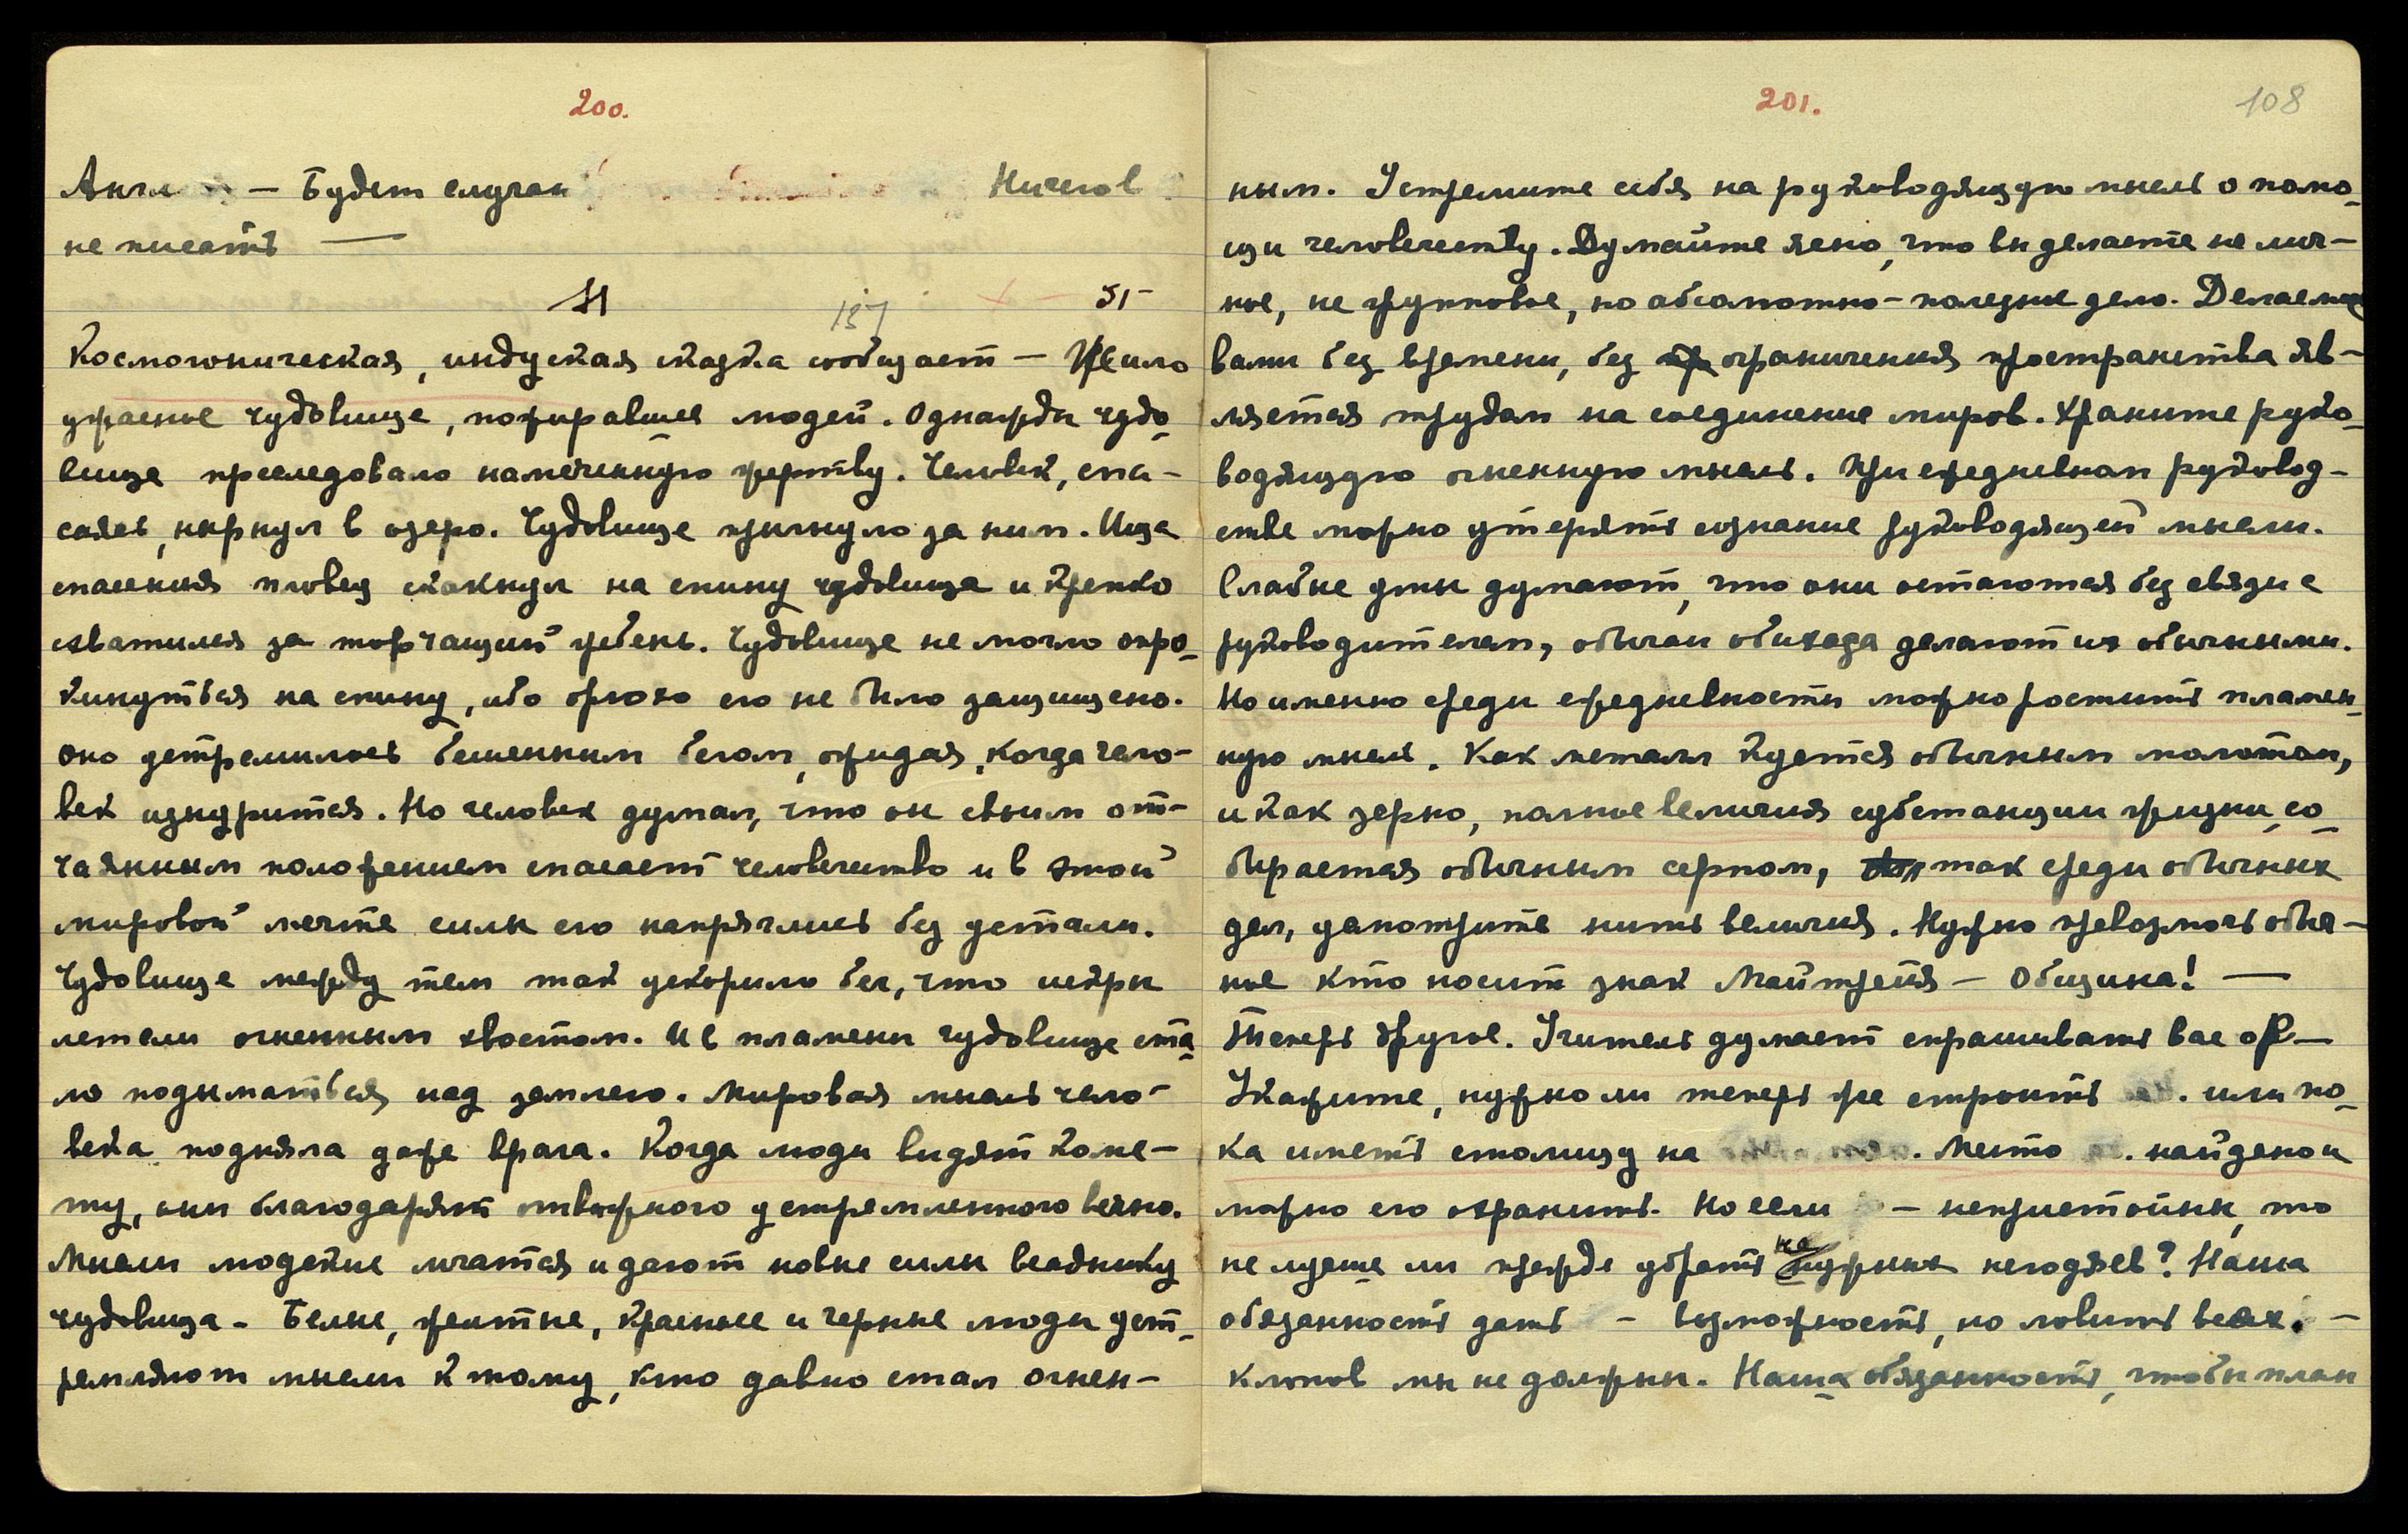 200.
Англ — Будет случай Ничего в
не писать —
Н 137 51
Космогоническая, индуская сказка сообщает — Жило
ужасное чудовище, пожиравшее людей. Однажды чудо-
вище преследовало намеченную жертву. Человек, спа-
саясь, нырнул в озеро. Чудовище прыгнуло за ним. Ища
спасения пловец скакнул на спину чудовища и крепко
схватился за торчащий гребень. Чудовище не могло опро-
кинуться на спину, ибо брюхо его не было защищено.
Оно устремилось бешенным бегом, ожидая, когда чело-
век изнурится. Но человек думал, что он своим от-
чаянным положением спасает человечество и в этой
мировой мечте силы его напряглись без устали.
Чудовище между тем так ускорило бег, что искры
летели огненным хвостом. И в пламени чудовище ста-
ло подыматься над землею. Мировая мысль чело-
века подняла даже врага. Когда люди видят коме-
ту, они благодарят отважного устремленного вечно.
Мысли людские мчатся и дают новые силы всаднику
чудовища — Белые, желтые, красные и черные люди уст-
ремляют мысли к тому, кто давно стал огнен-
201. 108
ным. Устремите себя на руководящую мысль о помо-
щи человечеству. Думайте ясно, что вы делаете не лич-
ное, не групповое, но абсолютно-полезное дело. Делаемое
вами без времени, без ограничения пространства яв-
ляется трудом на соединение миров. Храните руко-
водящую огненную мысль. При ежедневном руковод-
стве можно утерять сознание руководящей мысли.
Слабые умы думают, что они остаются без связи с
руководителем, обычаи обихода делают их обычными.
Но именно среди ежедневности можно ростить пламен-
ную мысль. Как металл куется обычным молотом,
и как зерно, полное величия субстанции жизни, со-
бирается обычным серпом, так среди обычных
дел, усмотрите нить величия. Нужно превозмочь обыч-
ное кто носит знак Майтрейя — Община! —
Теперь другое. Учитель думает спрашивать вас об —
Укажите, нужно ли теперь же строить . или по-
ка иметь столицу на . Место . найдено и
можно его охранить. Но если — непристойны, то
не лучше ли прежде убрать ненужных негодяев? Наша
обязанность дать — возможность, но ловить всех —
клопов мы не должны. Наша обязанность, чтобы план